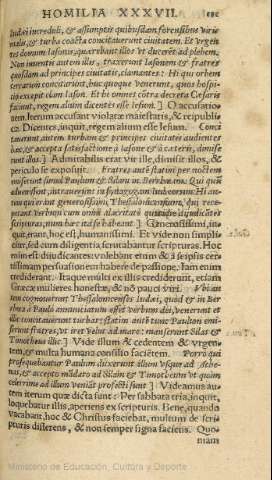 HOMILIA XXXVII.
Iudæi increduli, & assumptis quibusdam forensibus viris
malis, & turba coacta concitauerunt ciuitatem. Et vrgen
tes domum Iasonis, quærebant illos vt ducerēt ad plebem.
Non inuentis autem illis, traxerunt Iasonem & fratres
quosdam ad principes ciuitatis, clamantes: Hi qui orbem
terrarum concitarunt, huc quoque venerunt, quos hospi-
tio excepit eum Iason. Et hi omnes cōtra decreta Cesaris
faciunt, regem alium dicentes esse Iesum.] O accusatio
nem. Iterum accusant violatæ maiestatis, & reipublicæ
cæ. Dicentes, inquit, regem alium esse Iesum. Conci
tarunt autem turbam & principes ciuitatis audientes
hæc, & accepta satisfactione à Iasone & à cæteris, dimise
runt illos.] Admirabilis erat vir ille, dimisit illos, &
periculo se exposuit. Fratres autē statim per noctem
miserunt simul Paulum & Silam in Berrhœam. Qui quū
aduenissent, intrauerunt in synagogam Iudæorum. Hi au-
tem erant generosissimi, Thessalonicensium, qui rece-
perunt verbum cum omni alacritate quotidie dijudicātes
scripturas, num hæc ita se haberent.] Generosissimi, in-
quit, erant, hoc est, humanissimi. Et vide non simplici-
ter, sed cum diligentia scrutabantur scripturas. Hoc
enim est dijudicantes: volebant enim & à seipsis cer-
tissimam persuasionem habere de passione. Iam enim
crediderant. Itaque multi ex illis crediderunt, etiam
Græcæ mulieres honestæ, & nō pauci viri. Vbi au
tem cognouerunt Thessalonicenses Iudæi, quod & in Ber
rhœa à Paulo annunciatum esset verbum dei, venerunt et
illic concitauerunt turbas: statim autē tunc Paulum emi-
serunt fratres, vt iret velut ad mare: manserunt Silas &
Timotheus illic.] Vide illum & cedentem & vrgen-
tem, & multa humana consilio faciētem. Porrò qui
prosequebantur Paulum duxerunt illum vsque ad Athe-
nas, & accepto mādato ad Silam & Timotheum vt quàm
celerrime ad illum veniāt profecti sunt.] Videamus au-
tem iterum quæ dicta sunt: Per sabbata tria, inquit,
loquebatur illis, aperiens ex scripturis. Bene, quando
vacabant: hoc & Christus faciebat, multum de scri-
pturis disserens, & non semper signa faciens. Quo
niam
Ministerio de Educación, Cultura y Deporte